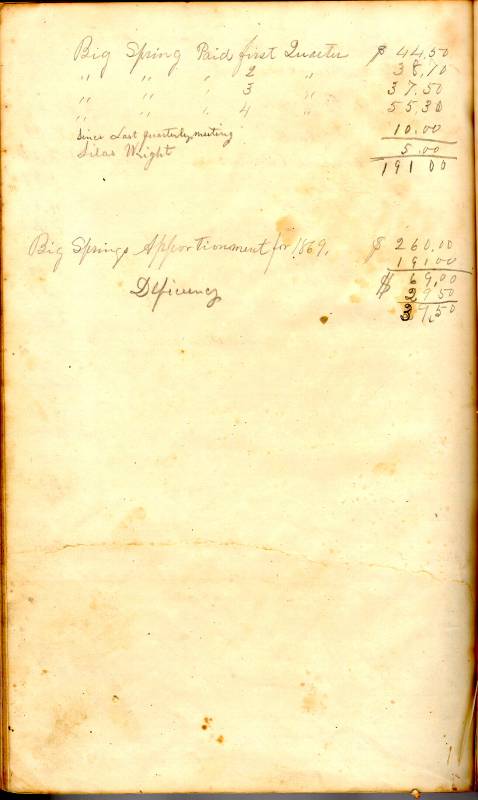 Big Spring Paid first Quarter $ 44,50
" " " 2 " 38,70
" " " 3 " 37.50
" " " 4 " 55.30
Since Last Quarterly meeting 10.00
Silas Wright 5.00
191 00
Big Springs Apportionment for 1869. $ 260.00
191 00
Deficiency $ 69,00
9 50